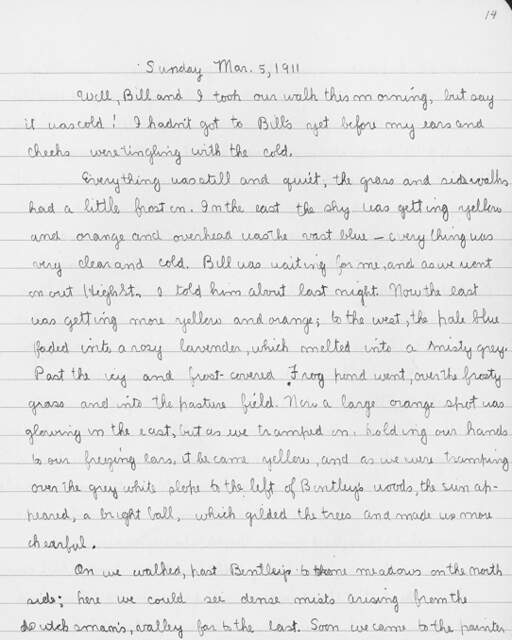 14
Sunday Mar. 5, 1911
Well, Bill and I took our walk this morning, but say
it was cold! I hadn't got to Bill's yet before my ears and
cheeks were tingling with the cold.
Everything was still and quiet, the grass and sidewalks
had a little frost on. In the east the sky was getting yellow
and orange and overhead was the vast blue — everything was
very clear and cold. Bill was waiting for me, and as we went
on out High St. I told him about last night. Now the east
was getting more yellow and orange; to the west, the pale blue
faded into a rosy lavender, which melted into a misty grey.
Past the icy and frost-covered Frog pond went, over the frosty
grass and into the pasture field. Now a large orange spot was
glowing in the east, but as we tramped on, holding our hands
to our freezing ears, it became yellow, and as we were tramping
over the grey white slope to the left of Bentley's woods, the sun ap-
peared, a bright ball, which gilded the trees and made us more
chearful.
On we walked, past Bentleys to the meadows on the north
side; here we could see dense mists arising from the
dutchman's, valley far to the east. Soon we came to the painter